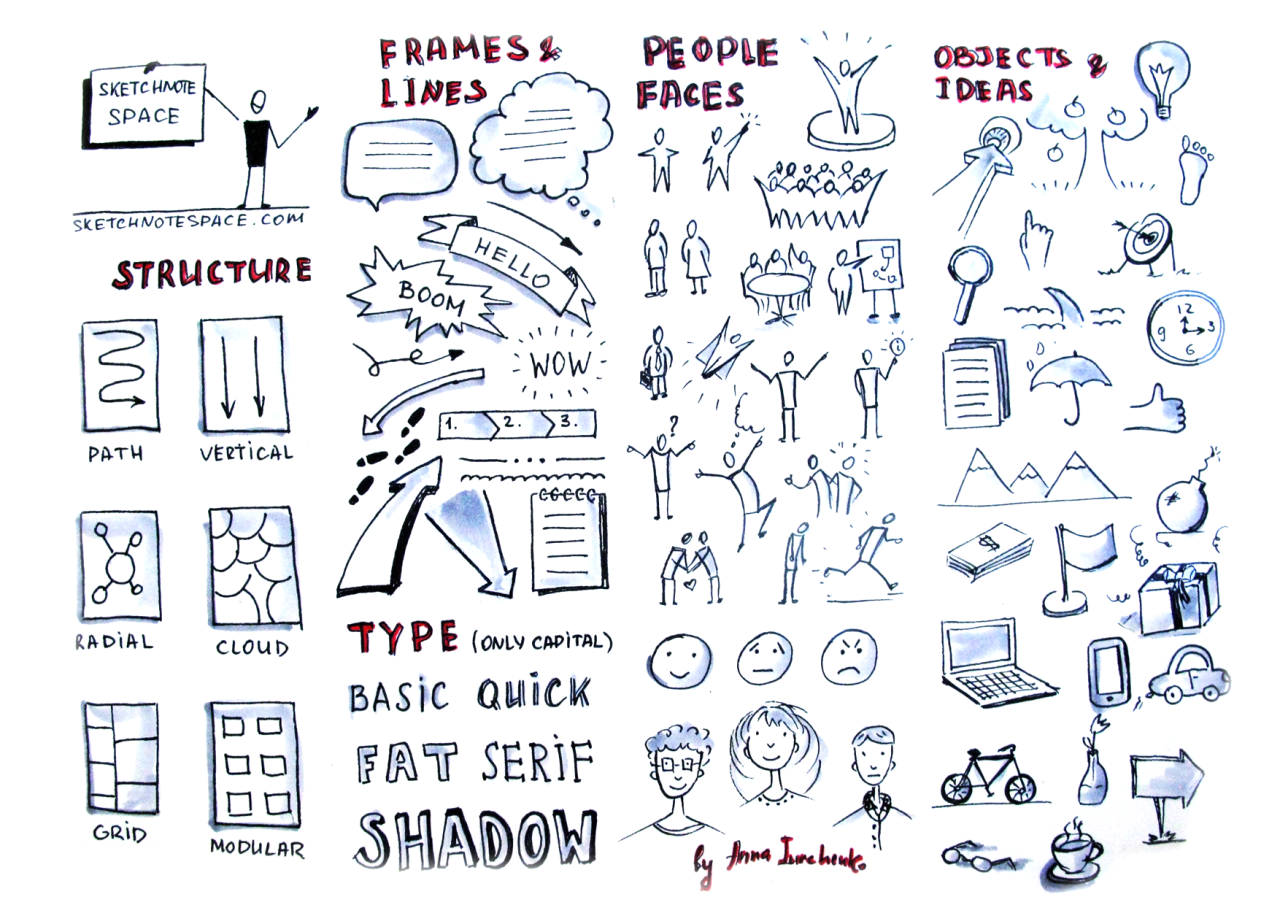 SKETCHNOTE
SPACE
SKETCHNOTESPACE.COM
STRUCTURE
PATH
VERTICAL
RADIAL
CLOUD
GRID
MODULAR
FRAMES &
LINES
HELLO
BOOM
WOW
1. 2. 3.
TYPE (ONLY CAPITAL)
BASIC QUICK
FAT SERIF
SHADOW
PEOPLE
FACES
i
?
by Anna Iurchenko
OBJECTS &
IDEAS
12
9 3
6
$
F